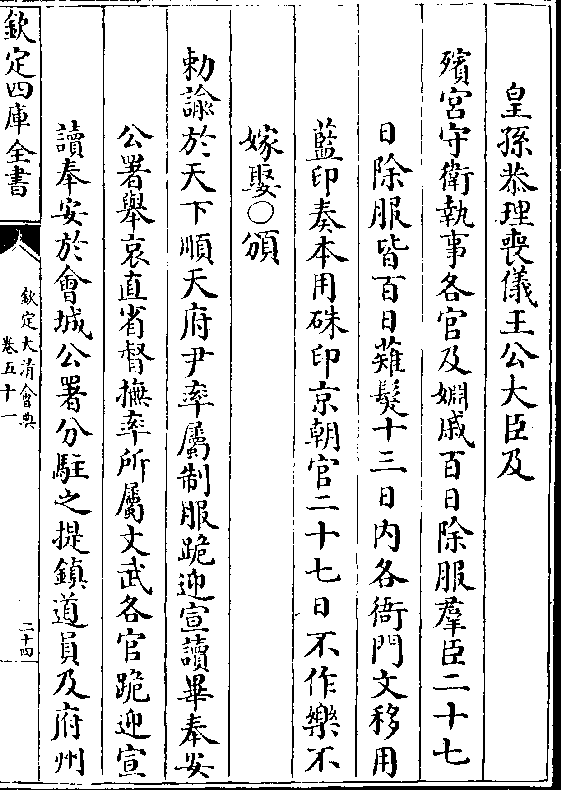 皇孫恭理喪儀王公大臣及
殯宮守衛執事各官及婣戚百日除服羣臣二十七
日除服皆百日薙髮十三日内各衙門文移用
藍印奏本用硃印京朝官二十七日不作樂不
嫁娶○頒
勅諭於天下順天府尹率屬制服跪迎宣讀畢奉安
公署舉哀直省督撫率所屬文武各官跪迎宣
讀奉安於會城公署分駐之提鎮道員及府州
欽定四庫全書
欽定大清會典
卷五十一
二十四